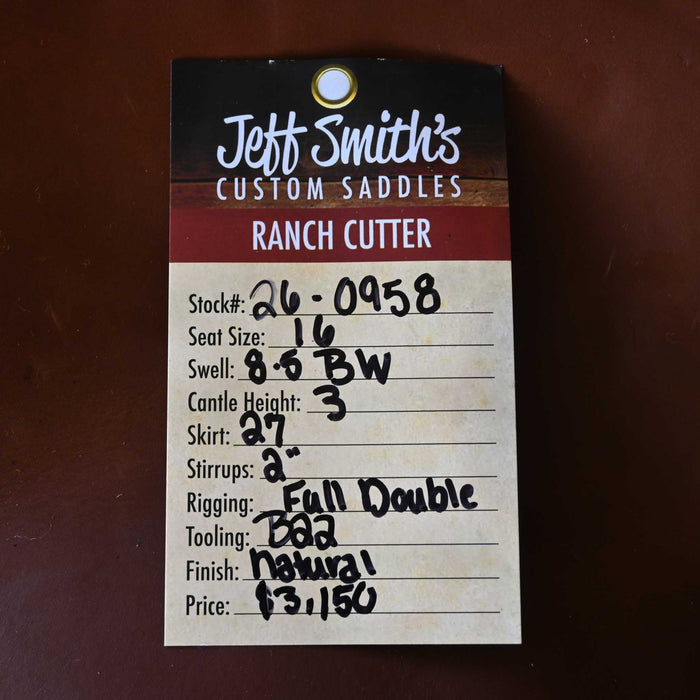 Jeff Smith's
CUSTOM SADDLES
RANCH CUTTER
Stock#: 26-0958
Seat Size: 16
Swell: 8.5 BW
Cantle Height: 3
Skirt: 27
Stirrups: 2"
Rigging: Full Double
Tooling: B22
Finish: Natural
Price: $3,150